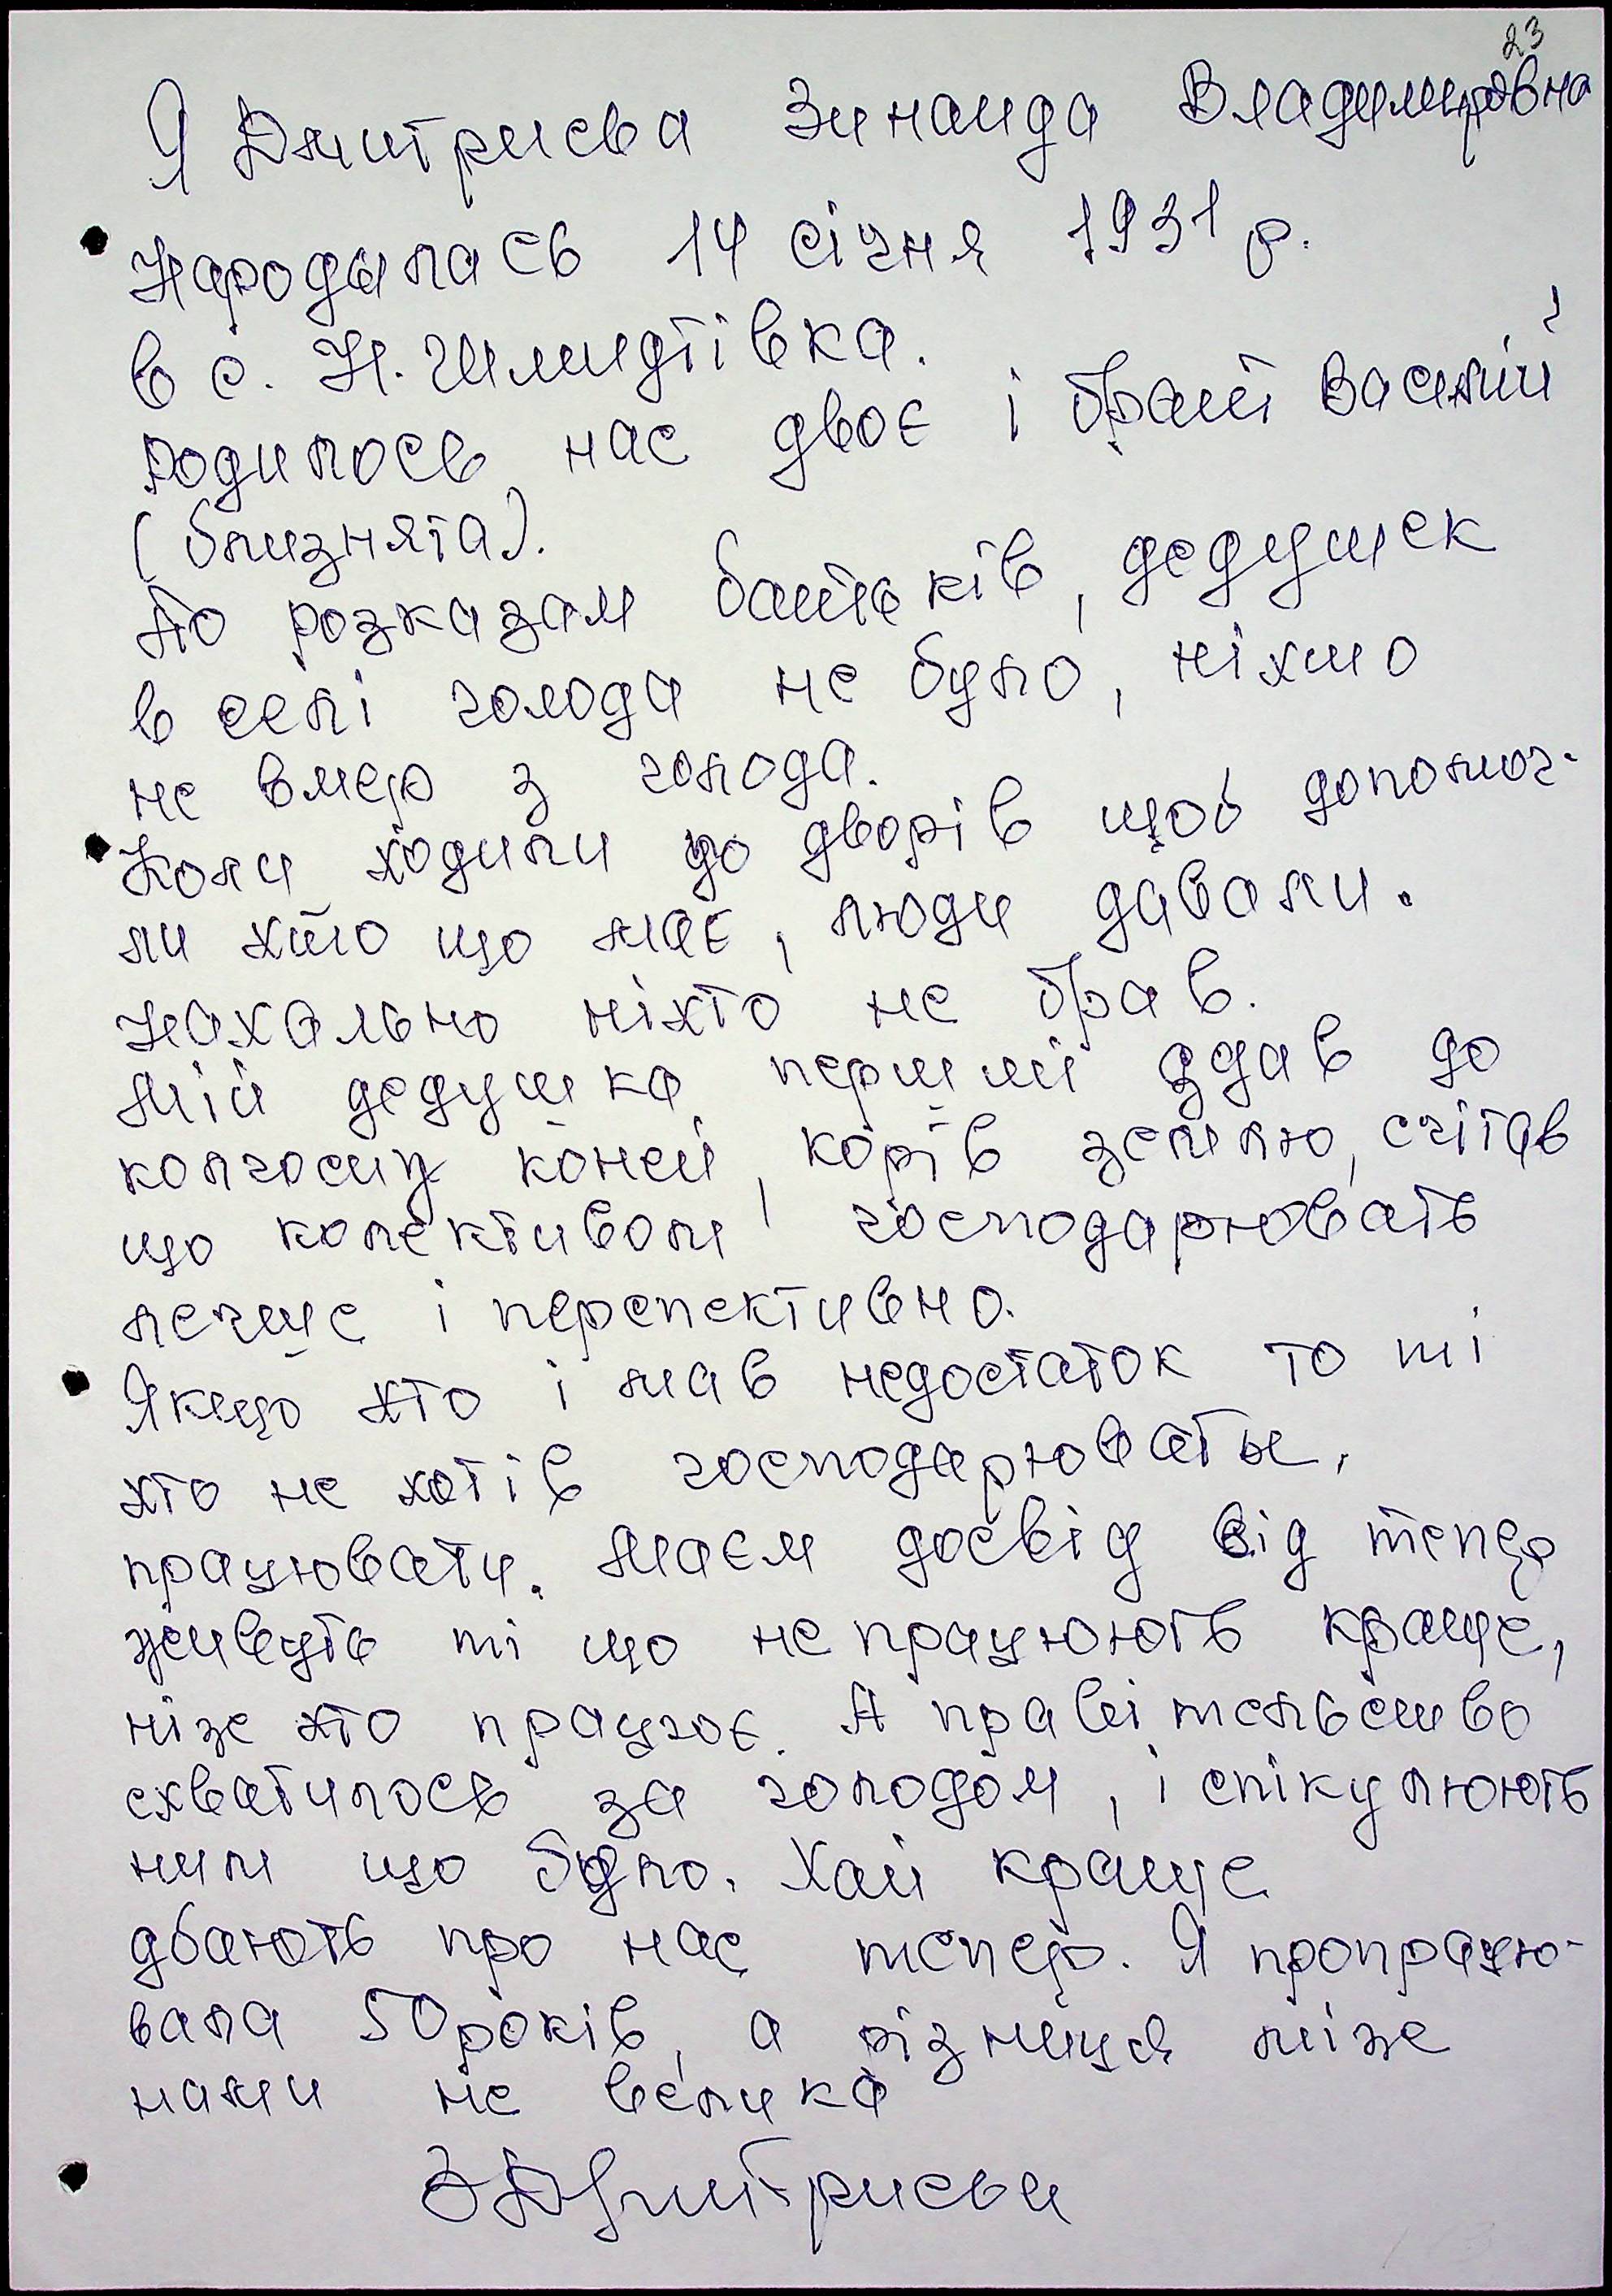 23
Я Дмитриева Зинаида Владимировна
народилась 14 січня 1931 р.
в с. Н. Шмидтівка.
родилось нас двоє і брат Василий
(близнята).
По розказам батьків, дедушек
в селі голода не було, ніхто
не вмер з голода.
Коли ходили до дворів щоб допомог-
ли хто що має, люди давали.
Нахально ніхто не брав.
Мій дедушка перший здав до
колгоспу коней, корів землю, счітав
що колективом господарювать
легще і перспективно.
Якщо хто і мав недостаток то ті
хто не хотів господарювати,
працювати. Маєм досвід від тепер
живуть ті що не працюють краще,
ніж хто працює. А правітельство
схватилось за голодом, і спікулюють
ним що було. Хай краще
дбають про нас тепер. Я пропрацю-
вала 50 років, а різниця між
нами не велика
З Дмитриева